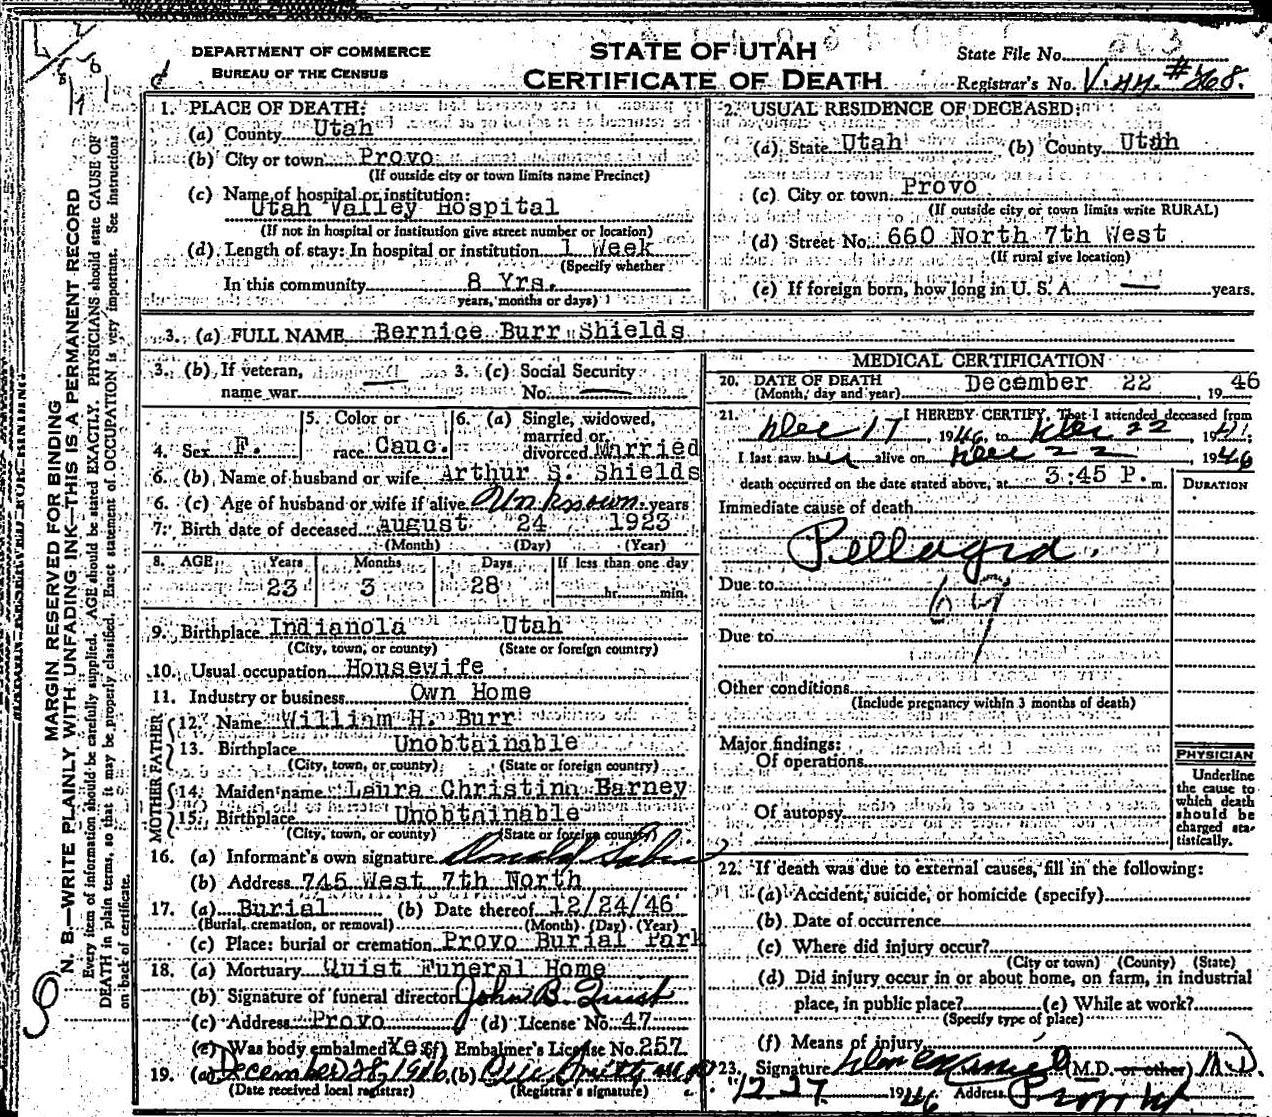 DEPARTMENT OF COMMERCE
BUREAU OF THE CENSUS
STATE OF UTAH
CERTIFICATE OF DEATH
State File No.
Registrar's No. V-44 #468.
MARGIN RESERVED FOR BINDING
N. B.—WRITE PLAINLY WITH UNFADING INK—THIS IS A PERMANENT RECORD
Every item of information should be carefully supplied. AGE should be stated EXACTLY. PHYSICIANS should state CAUSE OF
DEATH in plain terms, so that it may be properly classified. Exact statement of OCCUPATION is very important. See Instructions
on back of certificate.
1. PLACE OF DEATH:
(a) County Utah
(b) City or town Provo
(If outside city or town limits name Precinct)
(c) Name of hospital or institution:
Utah Valley Hospital
(If not in hospital or institution give street number or location)
(d) Length of stay: In hospital or institution 1 Week
(Specify whether
In this community 8 Yrs.
years, months or days)
2. USUAL RESIDENCE OF DECEASED:
(a) State Utah (b) County Utah
(c) City or town Provo
(If outside city or town limits write RURAL)
(d) Street No. 660 North 7th West
(If rural give location)
(e) If foreign born, how long in U. S. A. — years.
3. (a) FULL NAME Bernice Burr Shields
3. (b) If veteran, name war — 3. (c) Social Security No. —
4. Sex F. 5. Color or race Cauc. 6. (a) Single, widowed, married or divorced Married
6. (b) Name of husband or wife Arthur S. Shields
6. (c) Age of husband or wife if alive Unknown years
7. Birth date of deceased August 24 1923
(Month) (Day) (Year)
8. AGE Years Months Days If less than one day
23 3 28 hr. min.
9. Birthplace Indianola Utah
(City, town, or county) (State or foreign country)
10. Usual occupation Housewife
11. Industry or business Own Home
FATHER
12. Name William H. Burr
13. Birthplace Unobtainable
(City, town, or county) (State or foreign country)
MOTHER
14. Maiden name Laura Christina Barney
15. Birthplace Unobtainable
(City, town, or county) (State or foreign country)
16. (a) Informant's own signature
(b) Address 745 West 7th North
17. (a) Burial (b) Date thereof 12/24/46
(Burial, cremation, or removal) (Month) (Day) (Year)
(c) Place: burial or cremation Provo Burial Park
18. (a) Mortuary Quist Funeral Home
(b) Signature of funeral director John B. Quist
(c) Address Provo (d) License No. 47
(e) Was body embalmed Yes (f) Embalmer's License No. 257
19. (a) December 28, 1946 (b)
(Date received local registrar) (Registrar's signature)
MEDICAL CERTIFICATION
20. DATE OF DEATH December 22, 1946
(Month, day and year)
21. I HEREBY CERTIFY, That I attended deceased from
Dec 17, 1946, to Dec 22, 19
I last saw her alive on Dec 22, 1946
death occurred on the date stated above, at 3:45 P. m.
DURATION
Immediate cause of death
Pellagra.
Due to
Due to
Other conditions
(Include pregnancy within 3 months of death)
Major findings:
Of operations
Of autopsy
PHYSICIAN
Underline
the cause to
which death
should be
charged sta-
tistically.
22. If death was due to external causes, fill in the following:
(a) Accident, suicide, or homicide (specify)
(b) Date of occurrence
(c) Where did injury occur?
(City or town) (County) (State)
(d) Did injury occur in or about home, on farm, in industrial
place, in public place? (e) While at work?
(Specify type of place)
(f) Means of injury
23. Signature (M.D. or other) M.D.
12-27 1946 Address